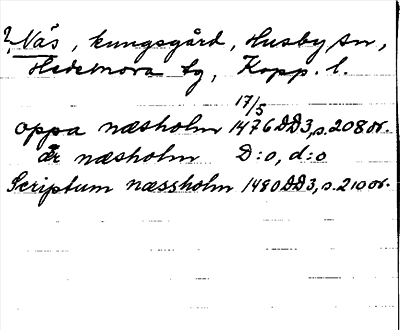 ?, Näs, kungsgård, Husby sn,
Hedemora tg, Kopp. l.
17/5
oppa næsholm 1476 DD3, s. 208 or.
är næsholm D:o, d:o
Scriptum næssholm 1480 DD3, s. 210 or.